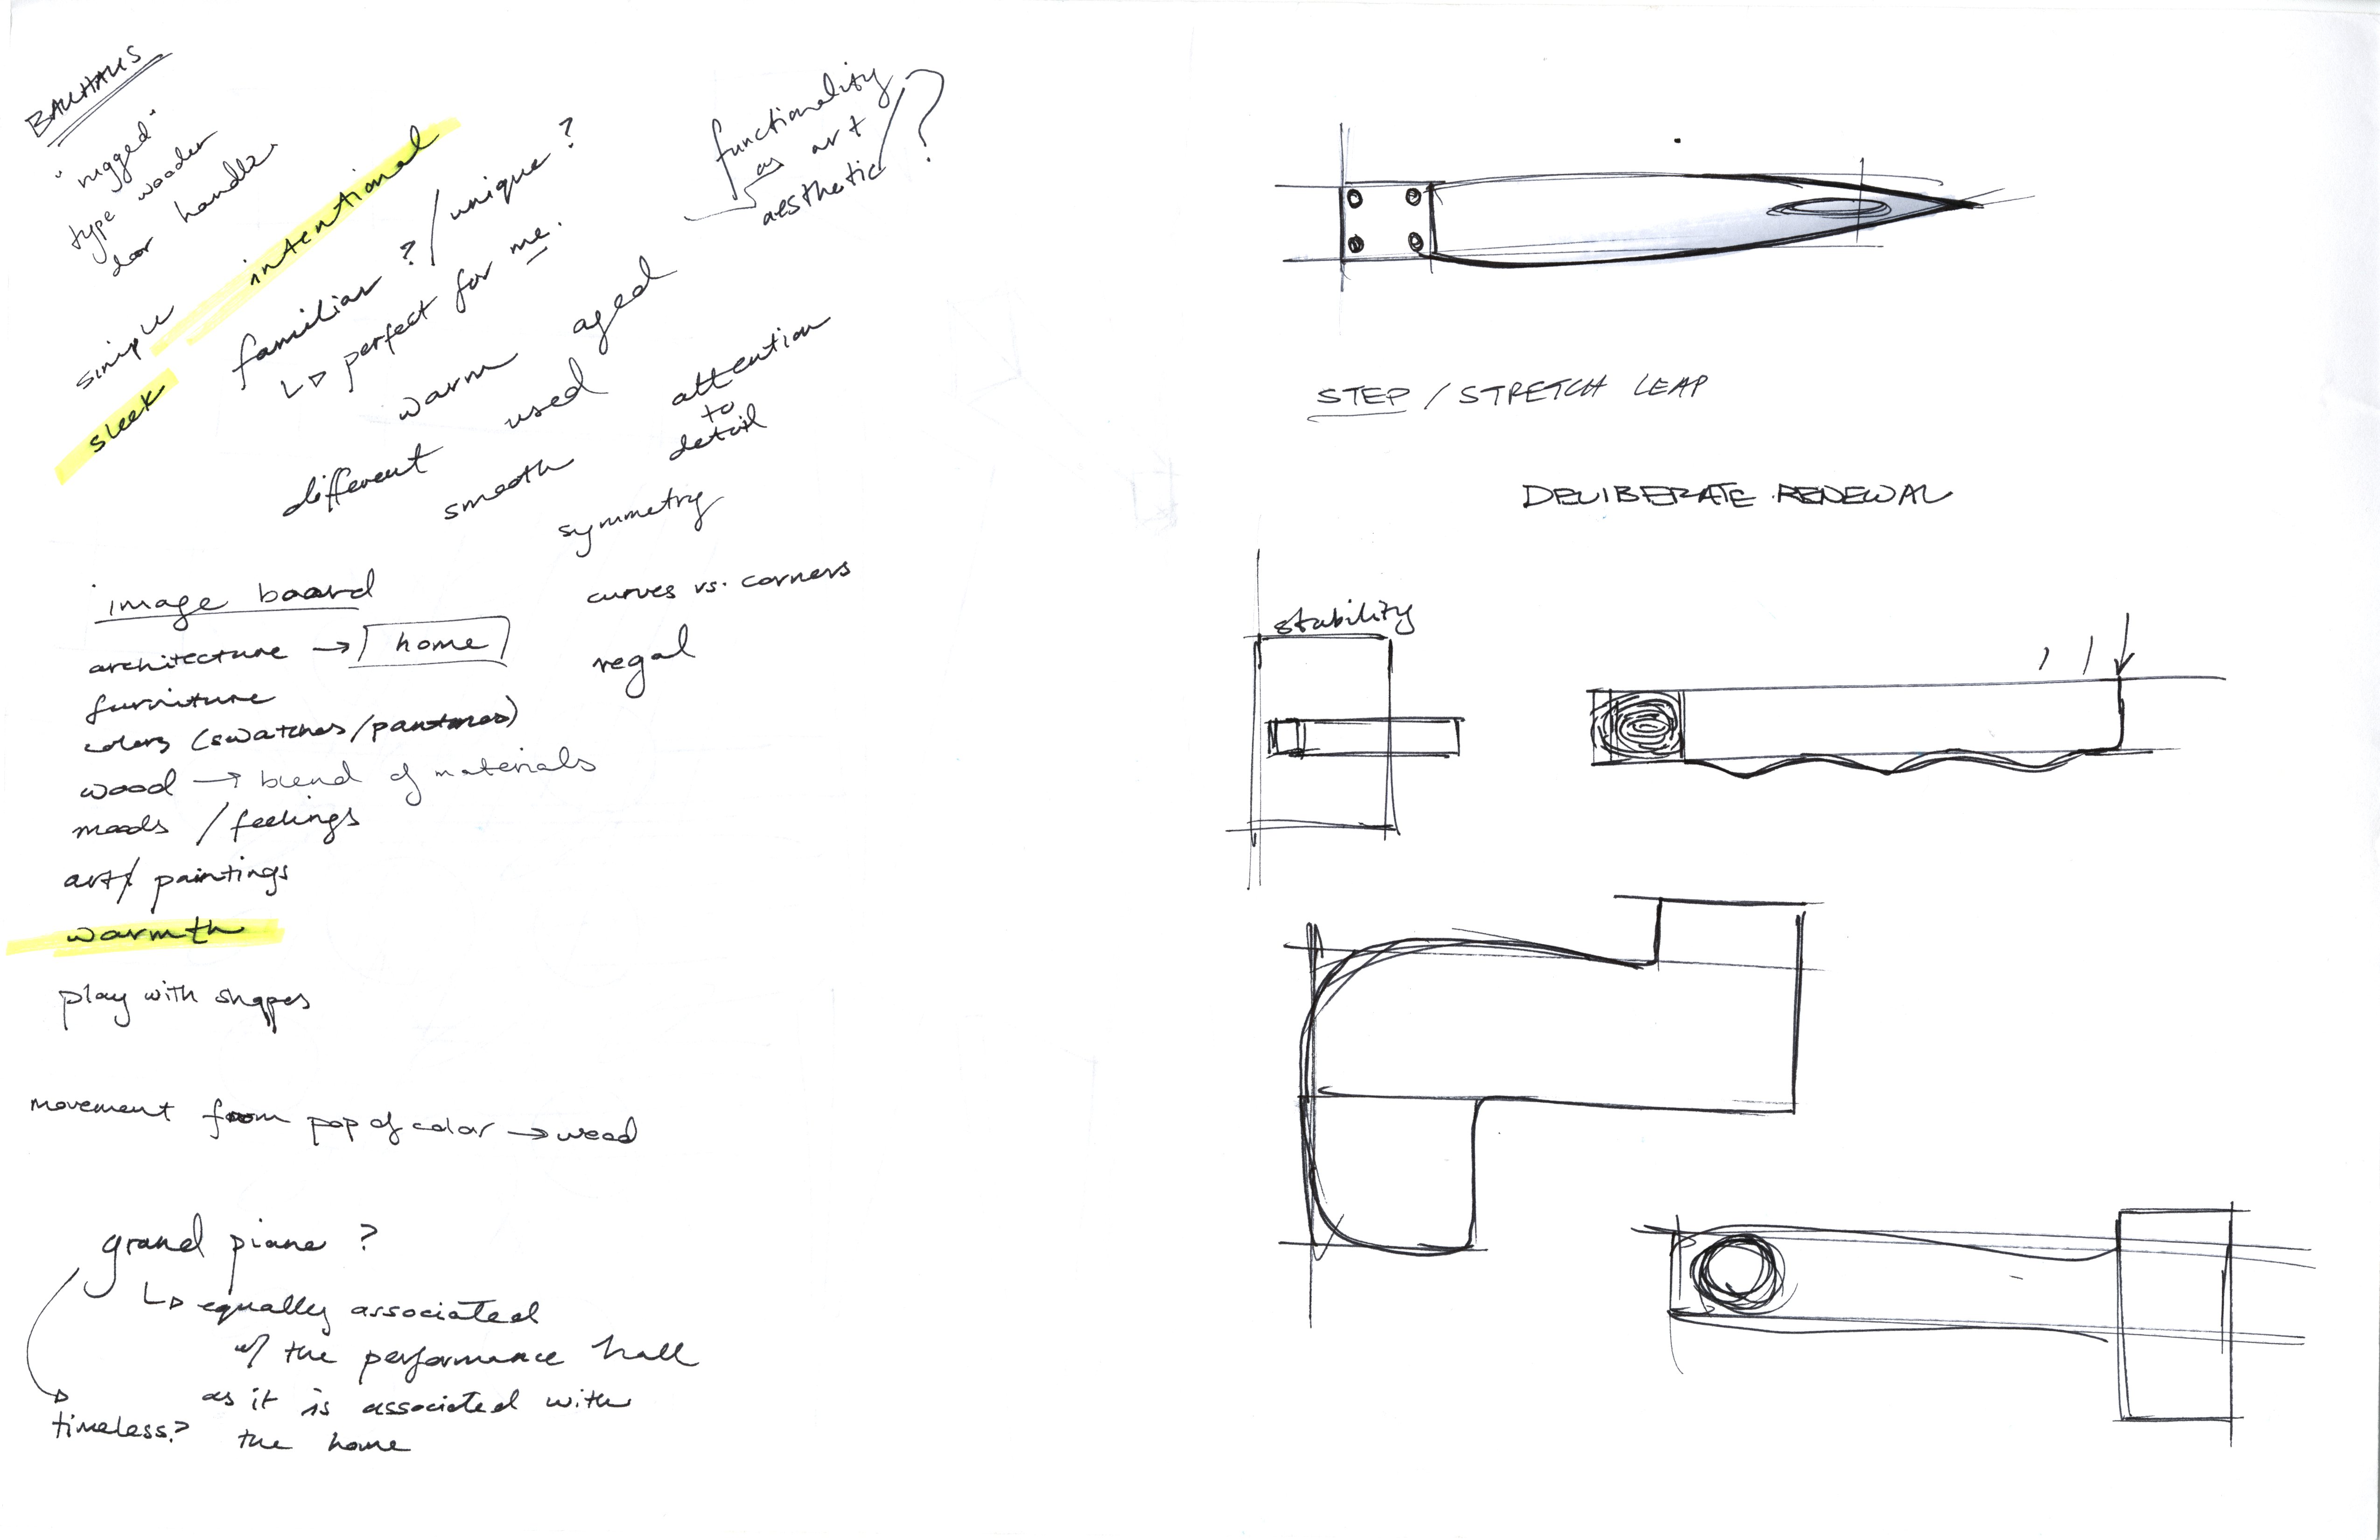 BAUHAUS
"rugged"
type wooden
door handle
simple
intentional
sleek
familiar? / unique?
↳ perfect for me.
functionality
as art
aesthetic?
warm
aged
different
used
attention
to
detail
smooth
symmetry
curves vs. corners
regal
image board
architecture → home
furniture
colors (swatches/pantones)
wood → blend of materials
moods / feelings
art/ paintings
warmth
play with shapes
movement from pop of color → wood
grand piano?
↳ equally associated
w/ the performance hall
as it is associated with
the home
timeless?
STEP / STRETCH LEAP
DELIBERATE RENEWAL
stability